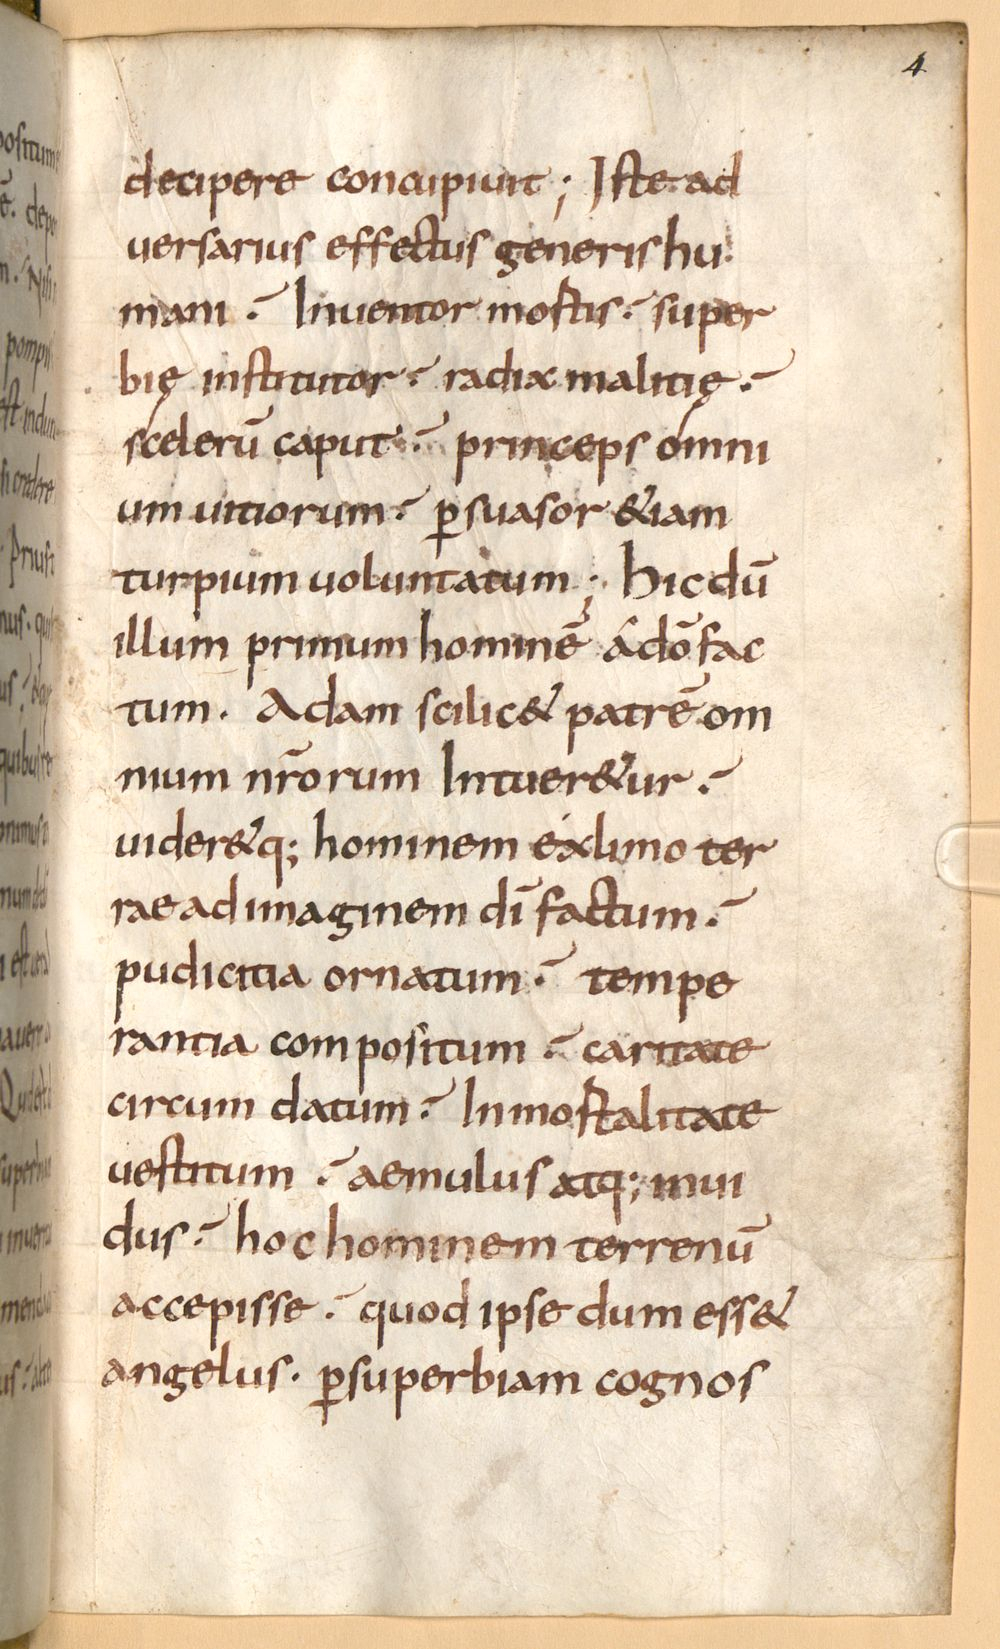 4
decipere concupiuit ; Iste ad
uersarius effectus generis hu
mani . Inuentor mortis . super
bię institutor . radix malitię .
scelerū caput . princeps omni
um uitiorum . ꝑsuasor &iam
turpium uoluntatum ; hic dū
illum primum hominē ádō fac
tum . Adam scilic& patrē om
nium nr̄orum Intuer&ur .
uider&q; hominem ex limo ter
rae ad imaginem dī factum .
pudicitia ornatum . tempe
rantia compositum . caritate
circum datum . Inmortalitate
uestitum . aemulus atq; inui
dus . hoc hominem terrenū
accepisse . quod ipse dum ess&
angelus . ꝑsuperbiam cognos